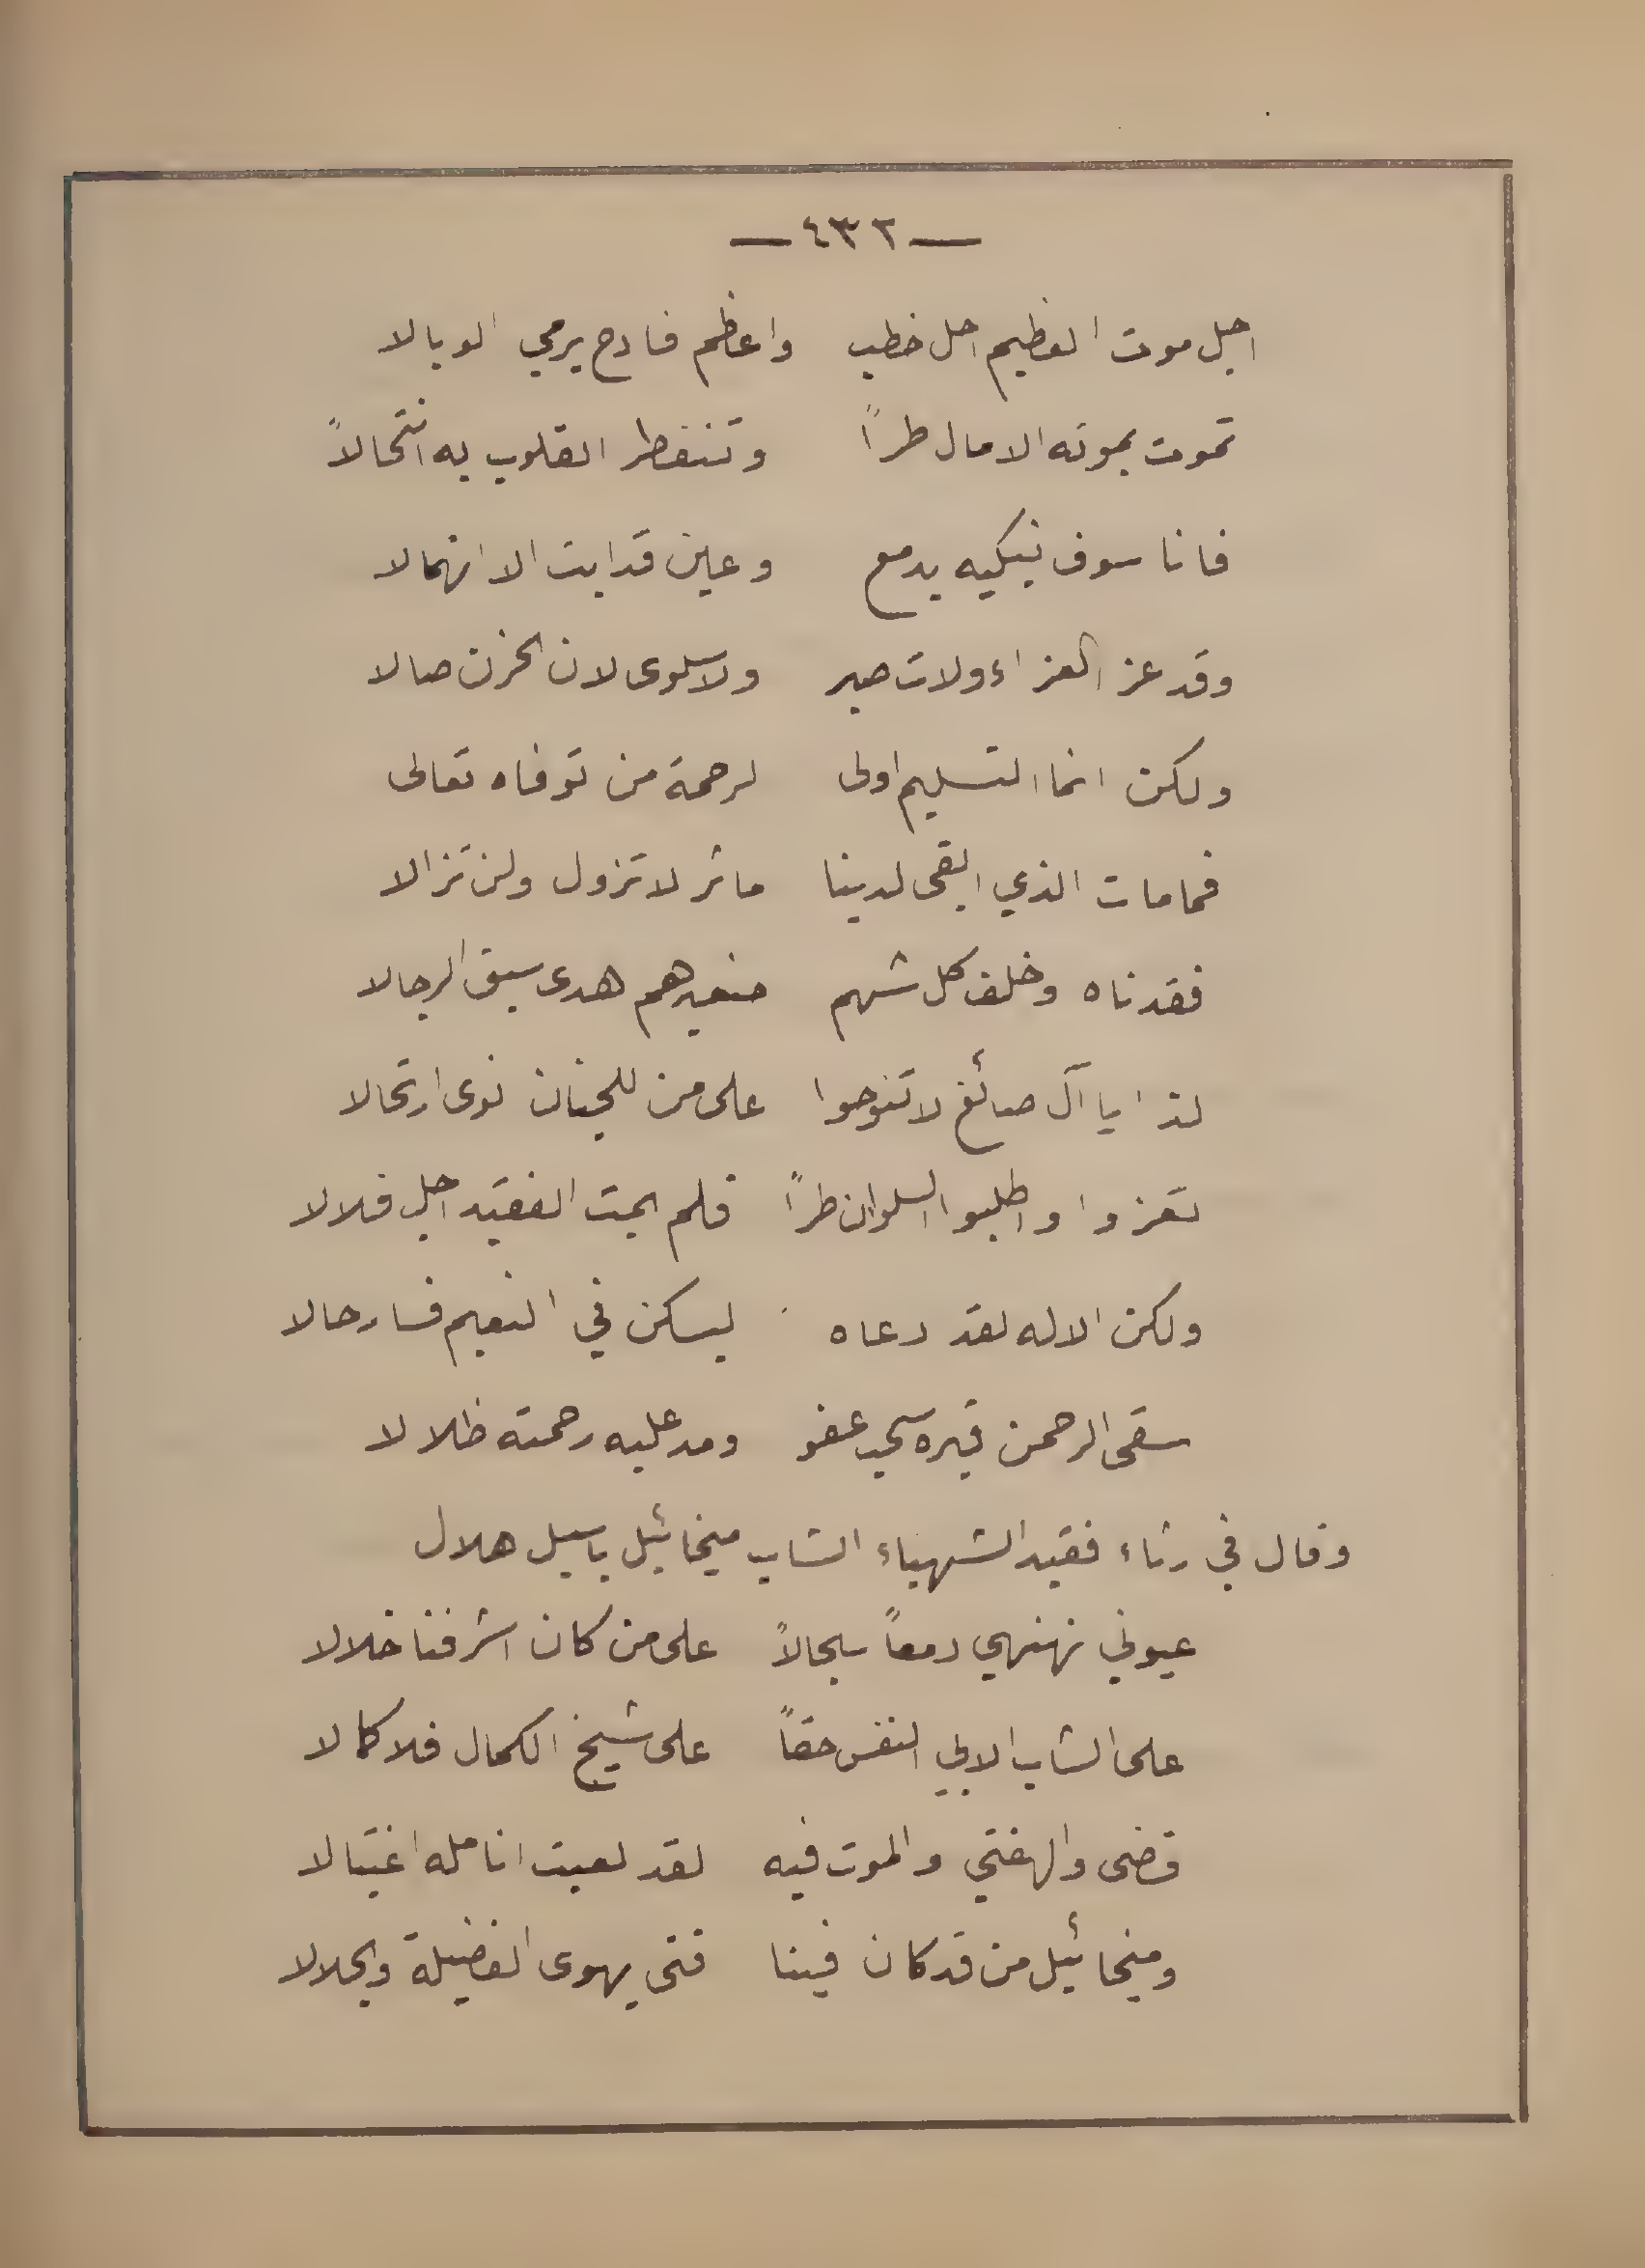 —٤٣٢—
اجل موت العظيم اجل خطب واعظم فادح يرمي الوبالا
تموت بموته الامال طراً وتنفطر القلوب به انتحالاً
فانا سوف نبكيه بدمع وعين قد ابت الا انهمالا
وقد عز العزاء ولات صبر ولا سلوى لان الحزن صالا
ولكن انما التسليم اولى لرحمة من توفاه تعالى
فما مات الذي ابقى لدينا ماثر لا تزول ولن تزالا
فقدناه وخلف كل شهم صغيرهم هدى سبق الرجالا
لذا يا آل صائغ لا تنوحوا على من للجنان نوى ارتحالا
تعزوا واطلبوا السلوان طراً فلم يمت الفقيد اجل فلالا
ولكن الاله لقد دعاه ليسكن في النعيم فسار حالا
سقى الرحمن قبره سحب عفو ومد عليه رحمته ظلالا
وقال في رثاء فقيد الشهباء الشاب ميخائيل باسيل هلال
عيوني نهنهي دمعاً سجالاً على من كان اشرفنا خلالا
على الشاب الابي النفس حقاً على شيخ الكمال فلا كمالا
قضى والهفتي والموت فيه لقد لعبت انامله اغتيالا
وميخائيل من قد كان فينا فتى يهوى الفضيلة والجلالا